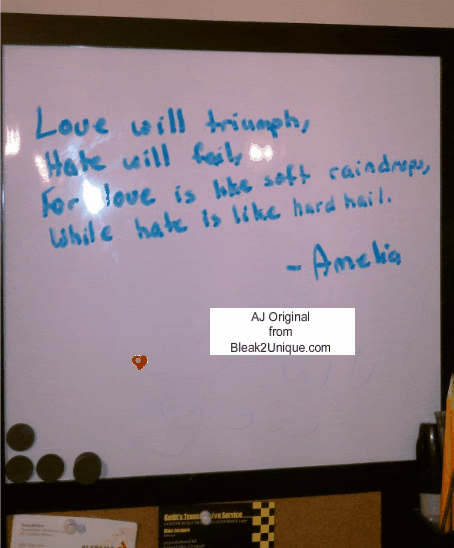 Love will triumph,
Hate will fail,
For love is like soft raindrops,
While hate is like hard hail.
- Amelia
AJ Original
from
Bleak2Unique.com
Service